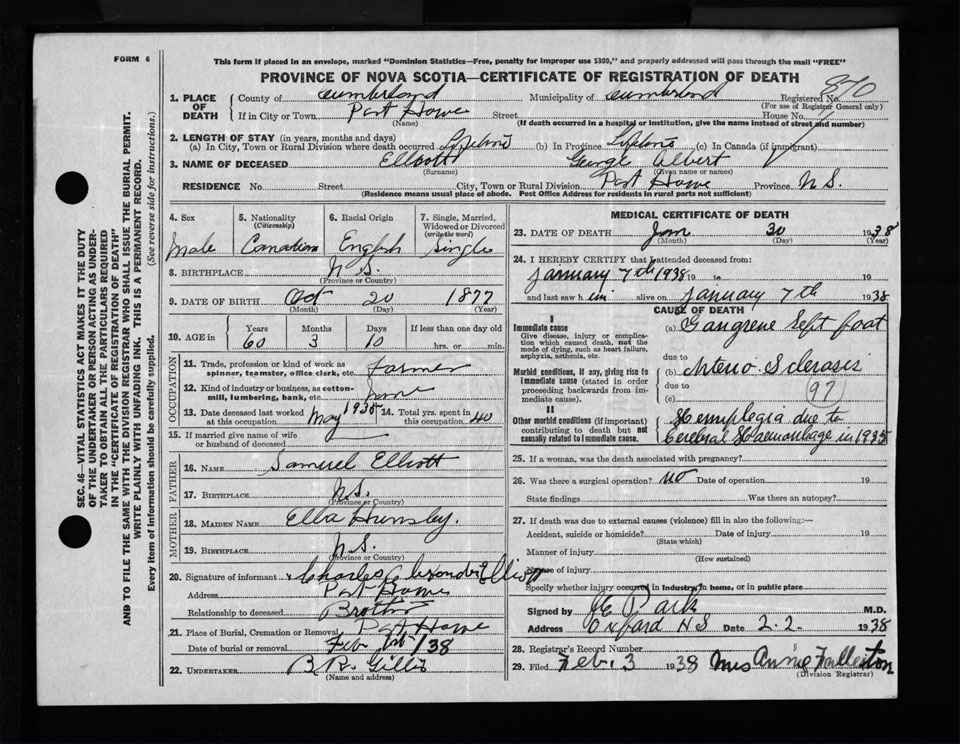 FORM 6
This form if placed in an envelope, marked "Dominion Statistics—Free, penalty for improper use $300," and properly addressed will pass through the mail "FREE"
PROVINCE OF NOVA SCOTIA—CERTIFICATE OF REGISTRATION OF DEATH
870
1. PLACE OF DEATH { County of Cumberland Municipality of Cumberland Registered No.
(For use of Registrar General only)
If in City or Town Port Howe Street House No.
(Name) (If death occurred in a hospital or institution, give the name instead of street and number)
2. LENGTH OF STAY (in years, months and days)
(a) In City, Town or Rural Division where death occurred Lifetime (b) In Province Lifetime (c) In Canada (if immigrant)
3. NAME OF DECEASED Elliott George Albert
(Surname) (Given name or names)
RESIDENCE No. Street City, Town or Rural Division Port Howe Province N.S.
(Residence means usual place of abode. Post Office Address for residents in rural parts not sufficient)
4. Sex Male
5. Nationality (Citizenship) Canadian
6. Racial Origin English
7. Single, Married, Widowed or Divorced (write the word) Single
8. BIRTHPLACE N.S.
(Province or Country)
9. DATE OF BIRTH Oct 20 1877
(Month) (Day) (Year)
10. AGE in { Years 60 Months 3 Days 10 If less than one day old hrs. or min.
OCCUPATION
11. Trade, profession or kind of work as spinner, teamster, office clerk, etc. Farmer
12. Kind of industry or business, as cotton-mill, lumbering, bank, etc.
13. Date deceased last worked at this occupation May 1935 14. Total yrs. spent in this occupation 40
15. If married give name of wife or husband of deceased
FATHER
16. NAME Samuel Elliott
17. BIRTHPLACE N.S.
(Province or Country)
MOTHER
18. MAIDEN NAME Ella
19. BIRTHPLACE N.S.
(Province or Country)
20. Signature of informant Charles Elliott
Address Port Howe
Relationship to deceased Brother
21. Place of Burial, Cremation or Removal Port Howe
Date of burial or removal Feb /38
22. UNDERTAKER B.R. Gillis
(Name and address)
MEDICAL CERTIFICATE OF DEATH
23. DATE OF DEATH Jan 30 1938
(Month) (Day) (Year)
24. I HEREBY CERTIFY that I attended deceased from:
January 7th 1938 19 to 19
and last saw h im alive on January 7th 1938
CAUSE OF DEATH
I
Immediate cause
Give disease, injury or complication which caused death, not the mode of dying, such as heart failure, asphyxia, asthenia, etc.
(a) Gangrene left foot
due to
Morbid conditions, if any, giving rise to immediate cause (stated in order proceeding backwards from immediate cause).
(b) Arterio Sclerosis
due to
(c) (97)
II
Other morbid conditions (if important) contributing to death but not causally related to immediate cause.
Hemiplegia due to
Cerebral Haemorrhage in 1935
25. If a woman, was the death associated with pregnancy?
26. Was there a surgical operation? no Date of operation 19
State findings Was there an autopsy?
27. If death was due to external causes (violence) fill in also the following:—
Accident, suicide or homicide? Date of injury 19
(State which)
Manner of injury
(How sustained)
Nature of injury
Specify whether injury occurred in industry, in home, or in public place
Signed by J E Park M.D.
Address Oxford N S Date 2-2- 1938
28. Registrar's Record Number
29. Filed Feb. 3 1938 Mrs Annie Fullerton
(Division Registrar)
SEC. 46—VITAL STATISTICS ACT MAKES IT THE DUTY
OF THE UNDERTAKER OR PERSON ACTING AS UNDER-
TAKER TO OBTAIN ALL THE PARTICULARS REQUIRED
IN THE "CERTIFICATE OF REGISTRATION OF DEATH"
AND TO FILE THE SAME WITH THE DIVISION REGISTRAR WHO SHALL ISSUE THE BURIAL PERMIT.
WRITE PLAINLY WITH UNFADING INK. THIS IS A PERMANENT RECORD.
Every item of information should be carefully supplied. (See reverse side for instructions.)